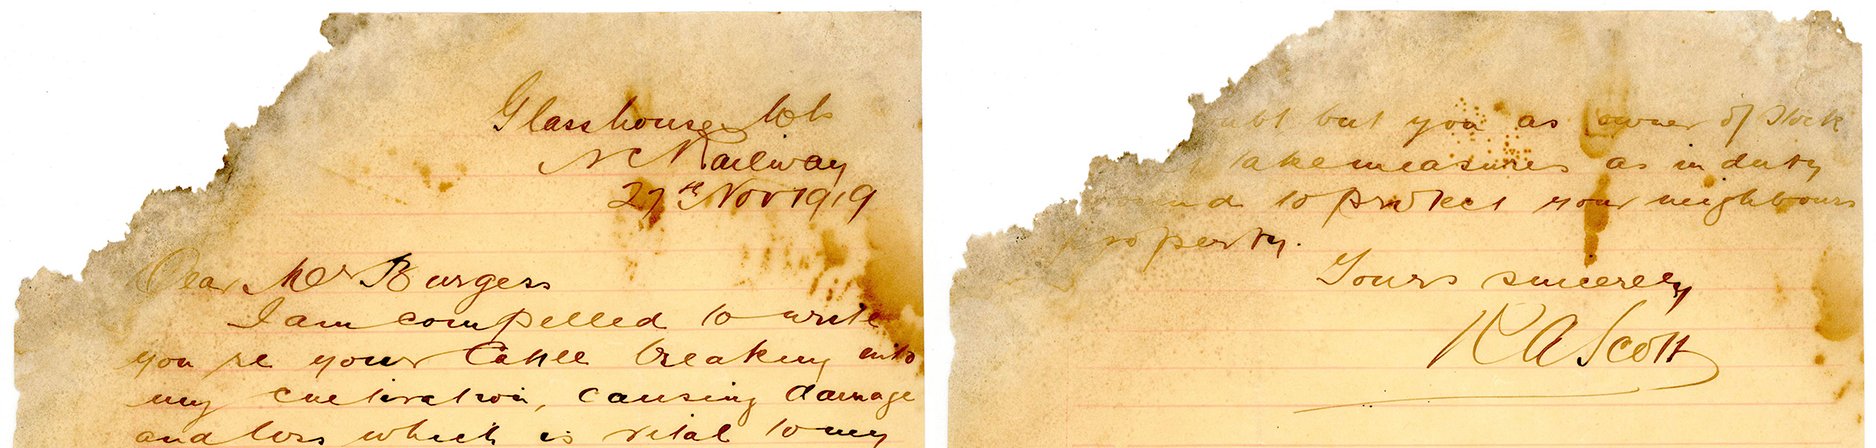 Glasshouse Mts
N C Railway
27th Nov 1919
Dear Mr Burgess
I am compelled to write
you re your Cattle breaking into
my cultivation, causing damage
and loss which is vital to my
but you as owner of stock
take measures as in duty
to protect your neighbours
property.
Yours sincerely
R A Scott